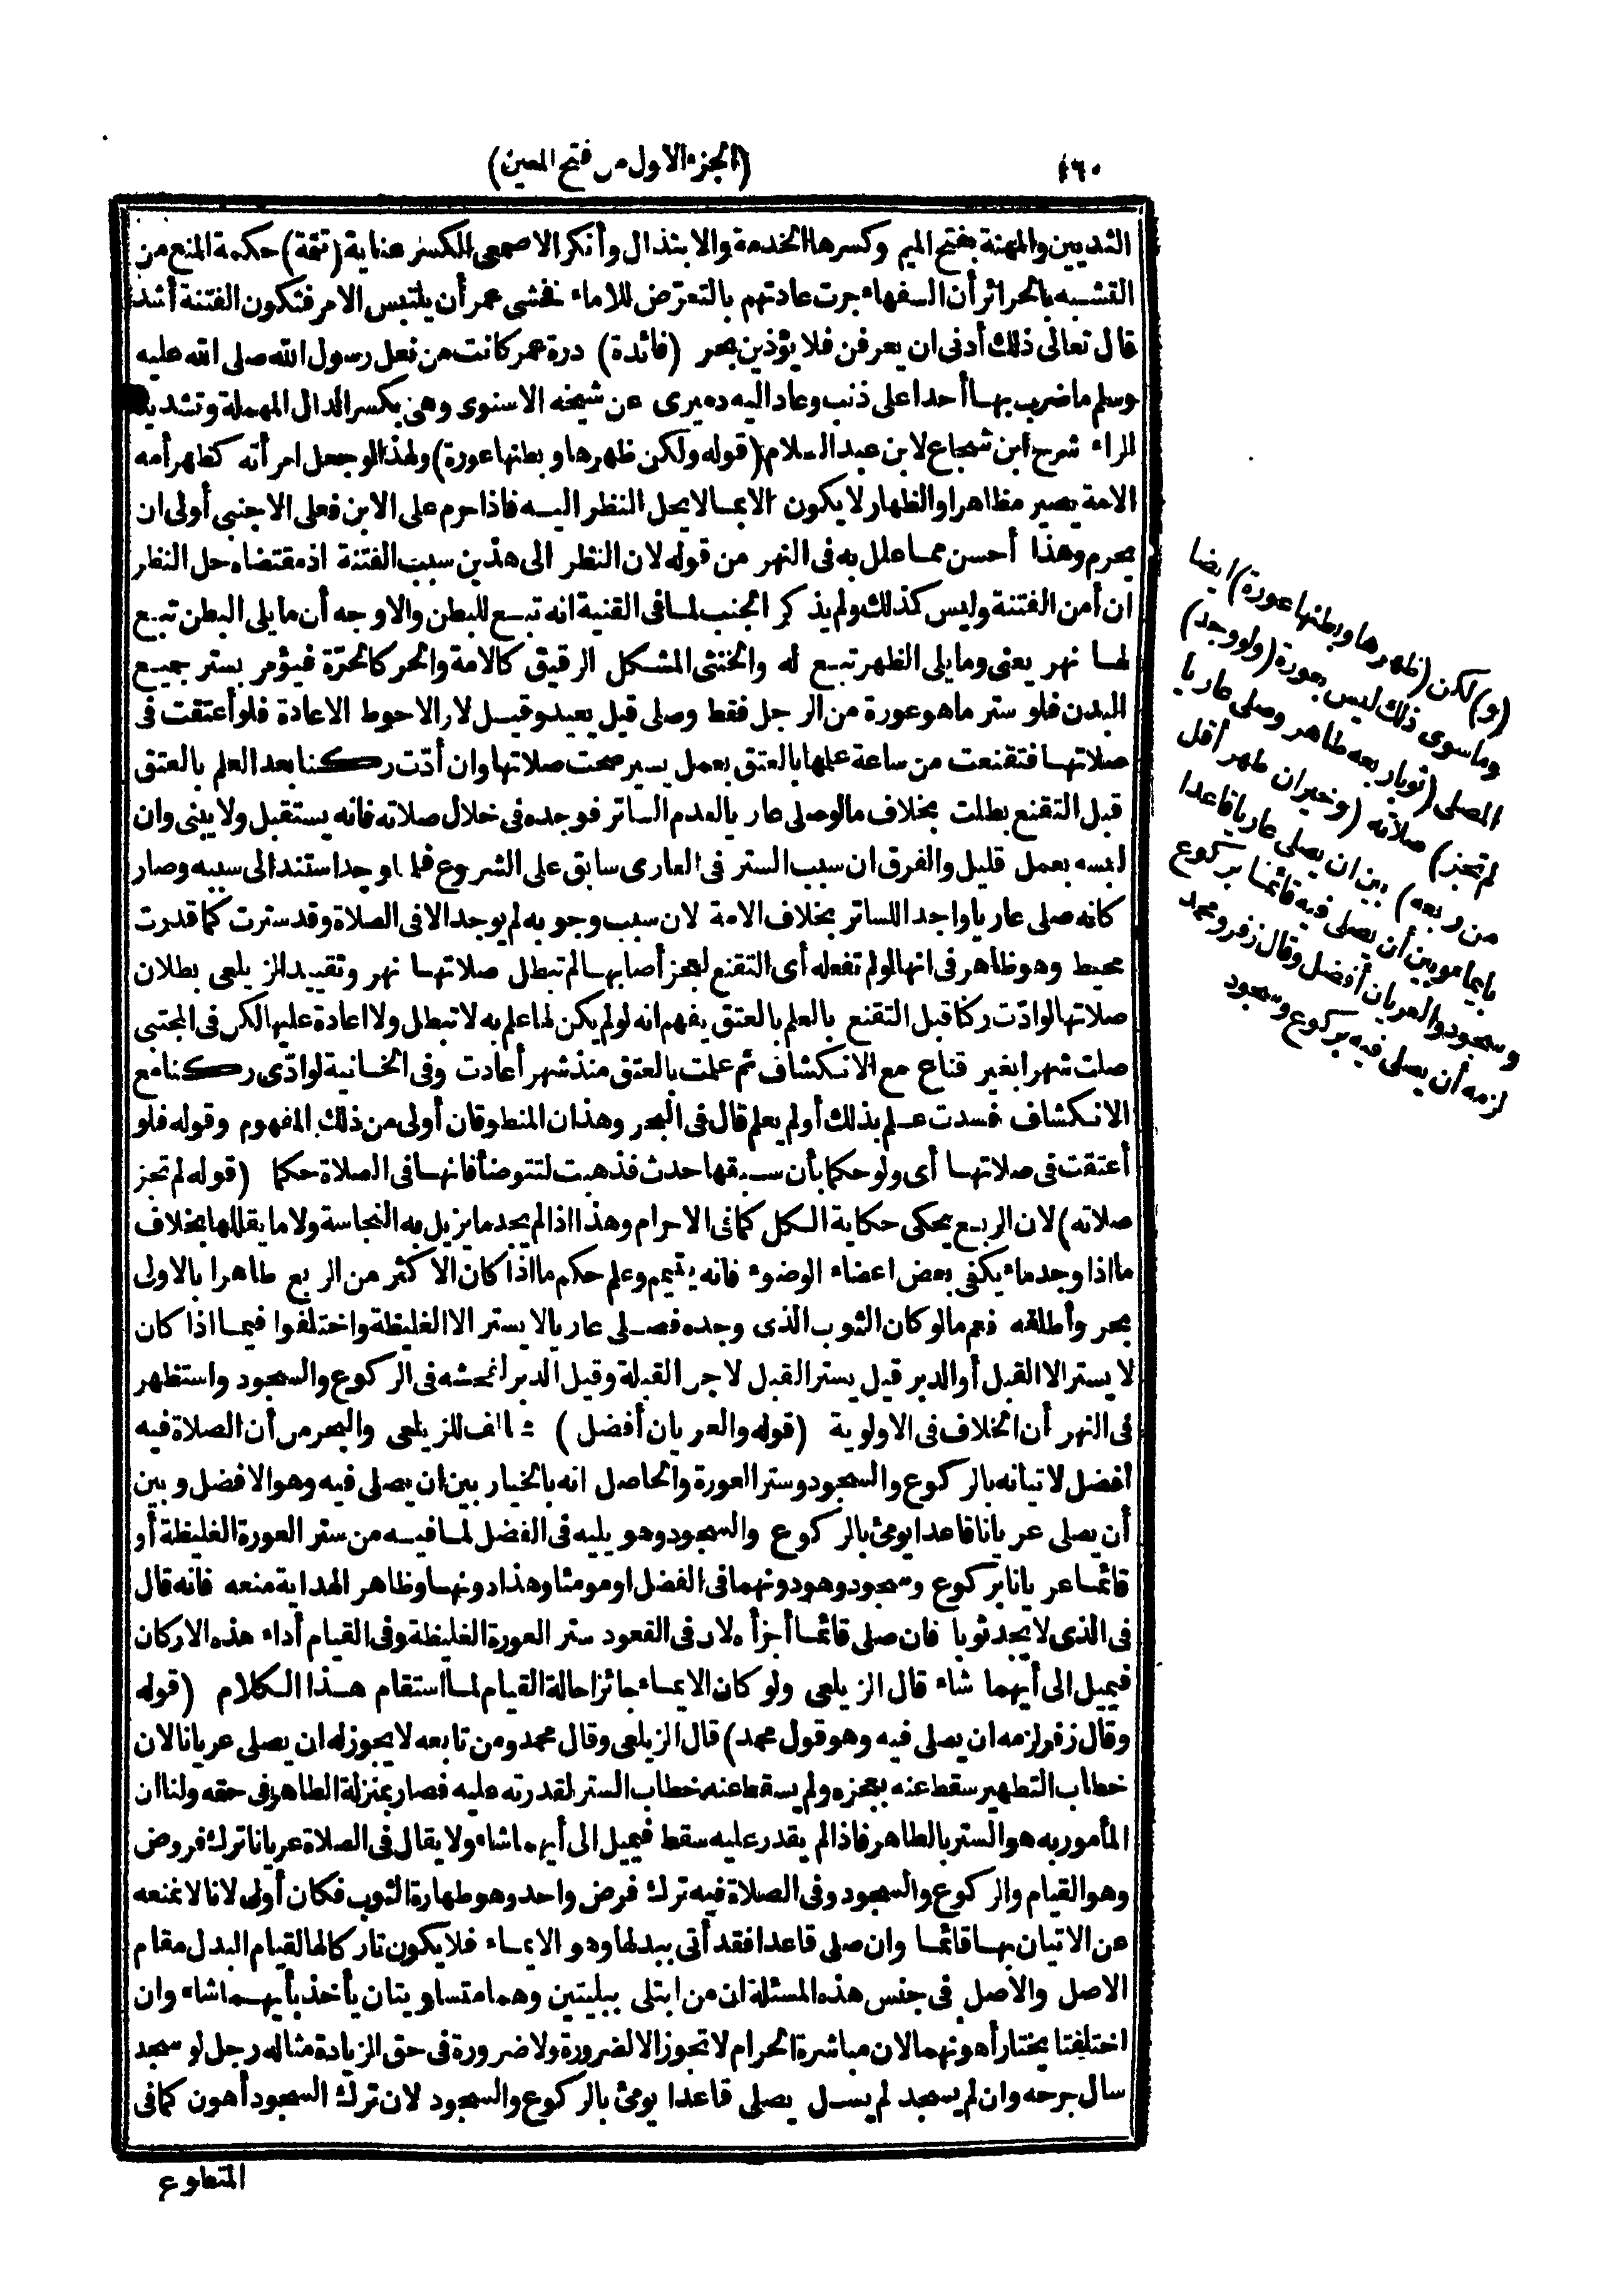 ١٦٠
(الجزء الاول من فتح المعين)
الثديين والمهنة بفتح الميم وكسرها الخدمة والابتذال وأنكر الاصمعى الكسر عناية (تتمة) حكمة المنع من
التشبه بالحرائر أن السفهاء جرت عادتهم بالتعرّض للاماء فخشى عمر أن يلتبس الامر فتكون الفتنة أشد
قال تعالى ذلك أدنى ان يعرفن فلا يؤذين بحر (فائدة) درة عمر كانت من نعل رسول الله صلى الله عليه
وسلم ماضرب بها أحدا على ذنب وعاد اليه دميرى عن شيخه الاسنوى وهى بكسر الدال المهملة وتشديد
الراء شرح ابن شجاع لابن عبد السلام (قوله ولكن ظهرها وبطنها عورة) ولهذا لو جعل امرأته كظهر أمه
الامة يصير مظاهرا والظهار لا يكون الا بما لا يحل النظر اليه فاذا حرم على الابن فعلى الاجنبى أولى ان
يحرم وهذا أحسن مما علل به فى النهر من قوله لان النظر الى هذين سبب الفتنة اذ مقتضاه حل النظر
ان أمن الفتنة وليس كذلك ولم يذكر الجنب لما فى القنية انه تبع للبطن والاوجه أن ما يلى البطن تبع
لها نهر يعنى وما يلى الظهر تبع له والخنثى المشكل الرقيق كالامة والحر كالحرّة فيؤمر بستر جميع
البدن فلو ستر ما هو عورة من الرجل فقط وصلى قيل يعيد وقيل لا والاحوط الاعادة فلو أعتقت فى
صلاتها فتقنعت من ساعة علمها بالعتق بعمل يسير صحت صلاتها وان أدّت ركنا بعد العلم بالعتق
قبل التقنع بطلت بخلاف ما لو صلى عاريا لعدم الساتر فوجده فى خلال صلاته فانه يستقبل ولا يبنى وان
لبسه بعمل قليل والفرق ان سبب الستر فى العارى سابق على الشروع فلما وجد استند الى سببه وصار
كانه صلى عاريا واجدا للساتر بخلاف الامة لان سبب وجوبه لم يوجد الا فى الصلاة وقد سترت كما قدرت
محيط وهو ظاهر فى انها لو لم تفعله أى التقنع لعجز أصابها لم تبطل صلاتها نهر وتقييد الزيلعى بطلان
صلاتها لو ادّت ركنا قبل التقنع بالعلم بالعتق يفهم انه لو لم يكن لها علم به لا تبطل ولا اعادة عليها لكن فى المجتبى
صلت شهرا بغير قناع مع الانكشاف ثم علمت بالعتق منذ شهر أعادت وفى الخانية لو ادّى ركنا مع
الانكشاف فسدت علم بذلك أو لم يعلم قال فى البحر وهذان المنطوقان أولى من ذلك المفهوم وقوله فلو
أعتقت فى صلاتها أى ولو حكما بأن سبقها حدث فذهبت لتتوضأ فانها فى الصلاة حكما (قوله لم تجز
صلاته) لان الربع يحكى حكاية الكل كما فى الاحرام وهذا اذا لم يجد ما يزيل به النجاسة ولا ما يقللها بخلاف
ما اذا وجد ماء يكفى بعض اعضاء الوضوء فانه يتيمم وعلم حكم ما اذا كان الاكثر من الربع طاهرا بالاولى
بحر وأطلقه فعم ما لو كان الثوب الذى وجده فصلى عاريا لا يستر الا الغليظة واختلفوا فيما اذا كان
لا يستر الا القبل أو الدبر قيل يستر القبل لاجل القبلة وقيل الدبر لفحشه فى الركوع والسجود واستظهر
فى النهر أن الخلاف فى الاولوية (قوله والعريان أفضل) مخالف للزيلعى والبحر من أن الصلاة فيه
افضل لاتيانه بالركوع والسجود وستر العورة والحاصل انه بالخيار بين ان يصلى فيه وهو الافضل وبين
أن يصلى عريانا قاعدا يومئ بالركوع والسجود وهو يليه فى الفضل لما فيه من ستر العورة الغليظة أو
قائما عريانا بركوع وسجود وهو دونهما فى الفضل او مومئا وهذا دونها وظاهر الهداية منعه فانه قال
فى الذى لا يجد ثوبا فان صلى قائما أجزأه لان فى القعود ستر العورة الغليظة وفى القيام أداء هذه الاركان
فيميل الى أيهما شاء قال الزيلعى ولو كان الايماء جائزا حالة القيام لما استقام هذا الكلام (قوله
وقال زفر لزمه ان يصلى فيه وهو قول محمد) قال الزيلعى وقال محمد ومن تابعه لا يجوز له ان يصلى عريانا لان
خطاب التطهير سقط عنه بعجزه ولم يسقط عنه خطاب الستر لقدرته عليه فصار بمنزلة الطاهر فى حقه ولنا ان
المأمور به هو الستر بالطاهر فاذا لم يقدر عليه سقط فيميل الى أيهما شاء ولا يقال فى الصلاة عريانا ترك فروض
وهو القيام والركوع والسجود وفى الصلاة فيه ترك فرض واحد وهو طهارة الثوب فكان أولى لانا لا نمنعه
عن الاتيان بها قائما وان صلى قاعدا فقد أتى ببدلها وهو الايماء فلا يكون تاركا لها لقيام البدل مقام
الاصل والاصل فى جنس هذه المسئلة ان من ابتلى ببليتين وهما متساويتان يأخذ بأيهما شاء وان
اختلفتا يختار أهونهما لان مباشرة الحرام لا تجوز الا لضرورة ولا ضرورة فى حق الزيادة مثاله رجل لو سجد
سال جرحه وان لم يسجد لم يسل يصلى قاعدا يومئ بالركوع والسجود لان ترك السجود أهون كما فى
المتطوع
(و) لكن (ظهرها وبطنها عورة) ايضا
وما سوى ذلك ليس بعورة (ولو وجد)
المصلى (ثوبا ربعه طاهر وصلى عاريا
لم تجز) صلاته (وخير ان طهر أقل
من ربعه) بين ان يصلى عاريا قاعدا
بايماء وبين أن يصلى فيه قائما بركوع
وسجود والعريان أفضل وقال زفر ومحمد
لزمه أن يصلى فيه بركوع وسجود